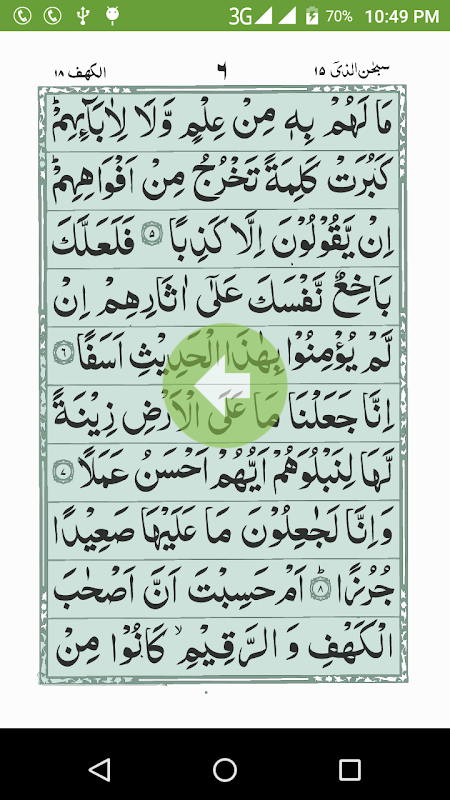 3G 70% 10:49 PM
سبحٰن الذیٓ ۱۵ ٦ الکهف ۱۸
مَا لَهُمْ بِهٖ مِنْ عِلْمٍ وَّلَا لِاٰبَآئِهِمْ ؕ
كَبُرَتْ كَلِمَةً تَخْرُجُ مِنْ اَفْوَاهِهِمْ ؕ
اِنْ يَّقُوْلُوْنَ اِلَّا كَذِبًا ۵ فَلَعَلَّكَ
بَاخِعٌ نَّفْسَكَ عَلٰٓى اٰثَارِهِمْ اِنْ
لَّمْ يُؤْمِنُوْا بِهٰذَا الْحَدِيْثِ اَسَفًا ۶
اِنَّا جَعَلْنَا مَا عَلَى الْاَرْضِ زِيْنَةً
لَّهَا لِنَبْلُوَهُمْ اَيُّهُمْ اَحْسَنُ عَمَلًا ۷
وَاِنَّا لَجٰعِلُوْنَ مَا عَلَيْهَا صَعِيْدًا
جُرُزًا ؕ ۸ اَمْ حَسِبْتَ اَنَّ اَصْحٰبَ
الْكَهْفِ وَالرَّقِيْمِ ۙ كَانُوْا مِنْ